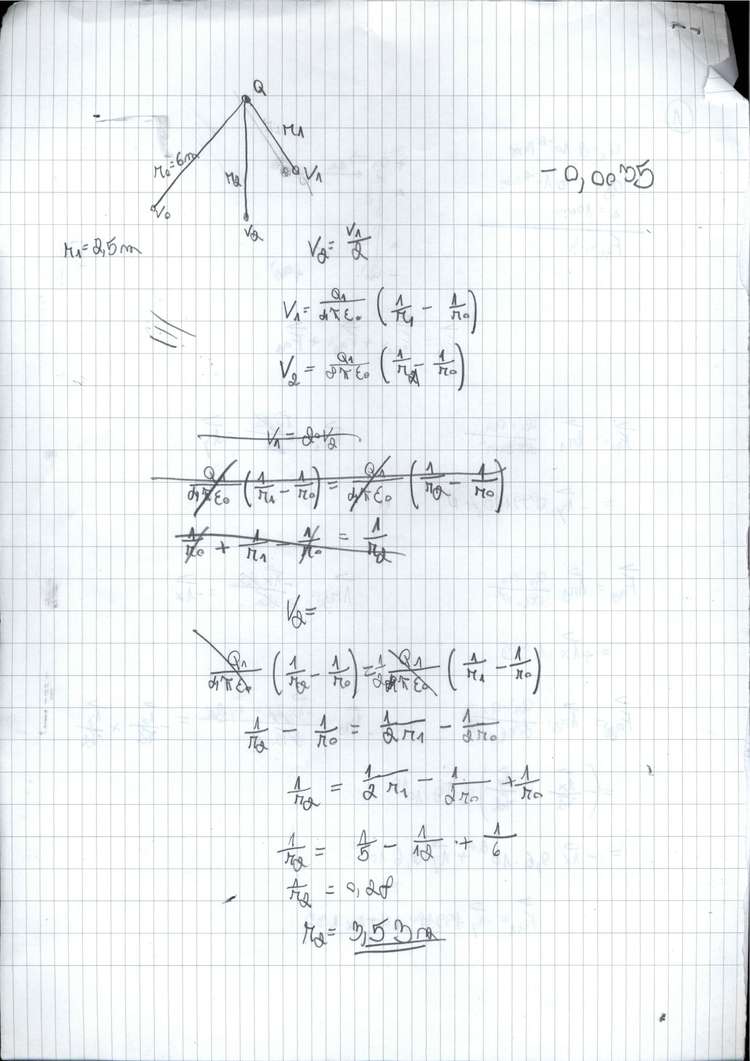 Q
r1
r0=6m
r2
V1
-0,0035
V0
V2
r1=2,5m
V2= V1/2
V1= Q1/4πε0 (1/r1 - 1/r0)
V2 = Q1/2πε0 (1/r2 - 1/r0)
V1 = 2·V2
Q1/4πε0 (1/r1 - 1/r0) = Q1/4πε0 (1/r2 - 1/r0)
1/r0 + 1/r1 - 1/r0 = 1/r2
V2=
Q1/4πε0 (1/r2 - 1/r0) = 1/2 Q1/4πε0 (1/r1 - 1/r0)
1/r2 - 1/r0 = 1/2r1 - 1/2r0
1/r2 = 1/2r1 - 1/2r0 + 1/r0
1/r2 = 1/5 - 1/12 + 1/6
1/r2 = 0,28
r2= 3,53m